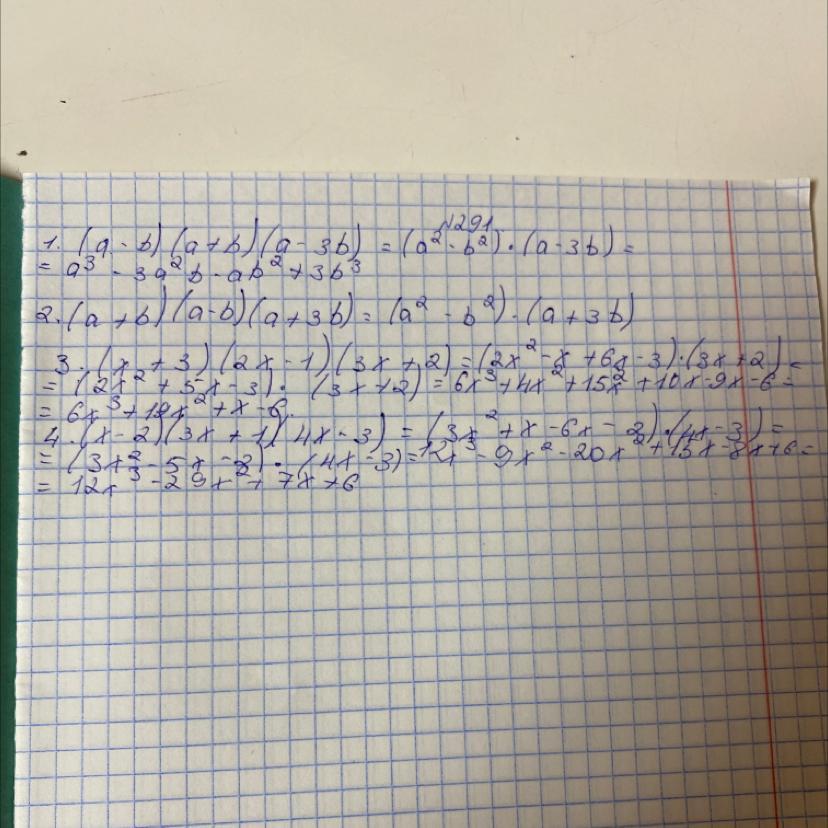 №291.
1. (a - b)(a+b)(a - 3b) = (a² - b²) · (a - 3b) =
= a³ - 3a²b - ab² + 3b³
2. (a + b)(a-b)(a + 3b) = (a² - b²) · (a + 3b)
3. (x + 3)(2x - 1)(3x + 2) = (2x² - x + 6x - 3) · (3x + 2) =
= (2x² + 5x - 3) · (3x + 2) = 6x³ + 4x² + 15x² + 10x - 9x - 6 =
= 6x³ + 19x² + x - 6.
4. (x - 2)(3x + 1)(4x - 3) = (3x² + x - 6x - 2) · (4x - 3) =
= (3x² - 5x - 2) · (4x - 3) = 12x³ - 9x² - 20x² + 15x - 8x + 6 =
= 12x³ - 29x² + 7x + 6